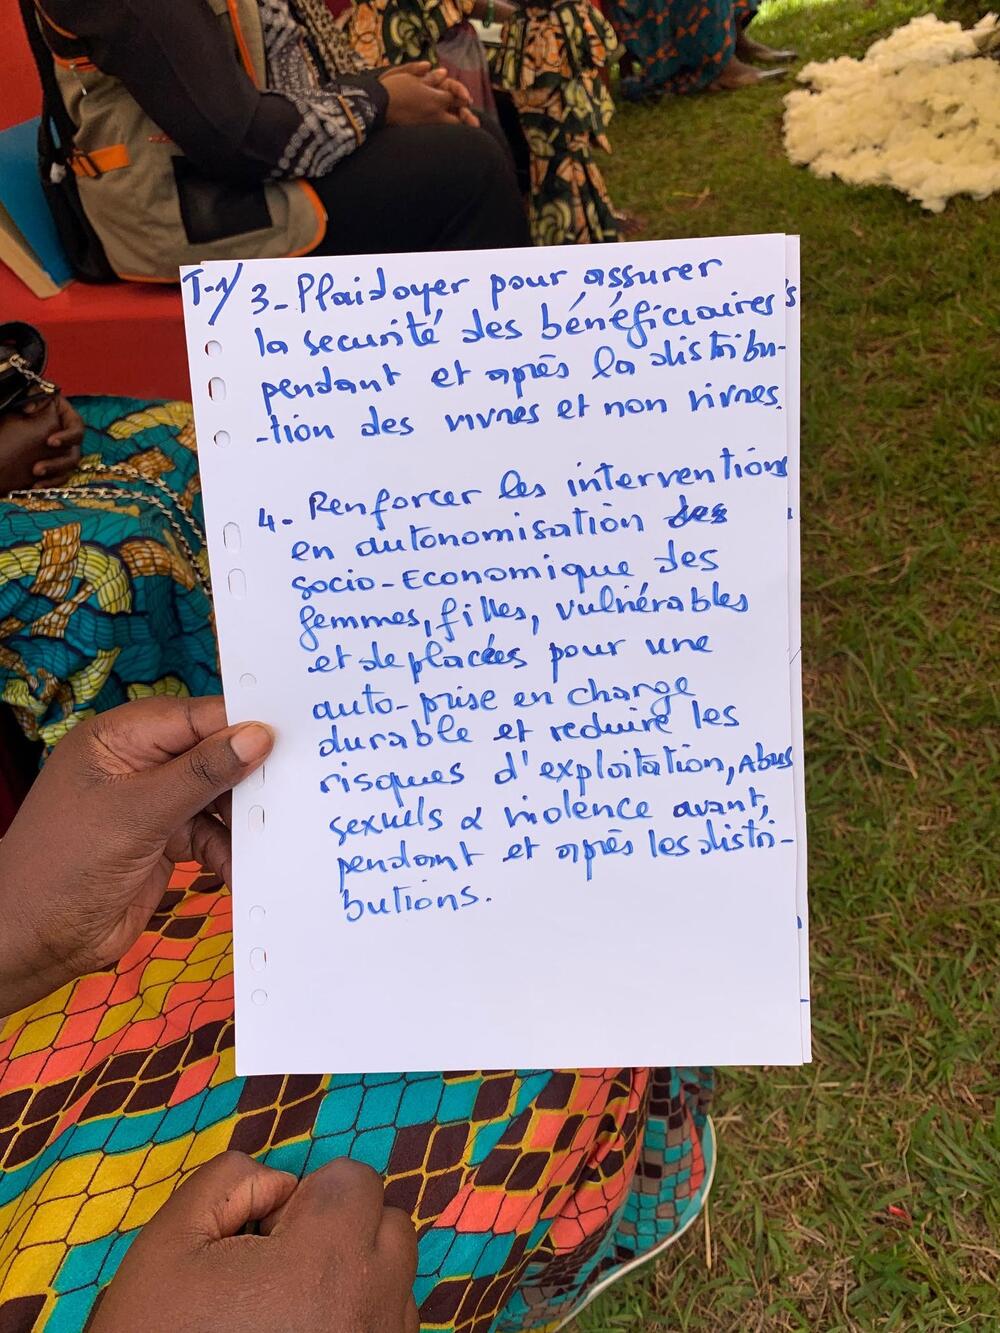 T-1/ 3- Plaidoyer pour assurer
la securité des bénéficiaires
pendant et après la distribu-
-tion des vivres et non vivres.
4- Renforcer les interventions
en autonomisation des
socio-Economique des
femmes, filles, vulnérables
et deplacées pour une
auto-prise en charge
durable et reduire les
risques d'exploitation, Abus
sexuels & violence avant,
pendant et après les distri-
butions.